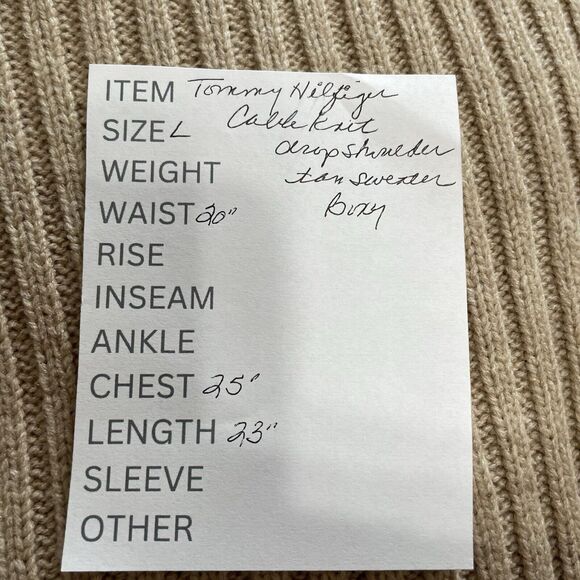 ITEM Tommy Hilfiger
SIZE L Cable Knit
drop shoulder
WEIGHT tan sweater
WAIST 20" Boxy
RISE
INSEAM
ANKLE
CHEST 25"
LENGTH 23"
SLEEVE
OTHER